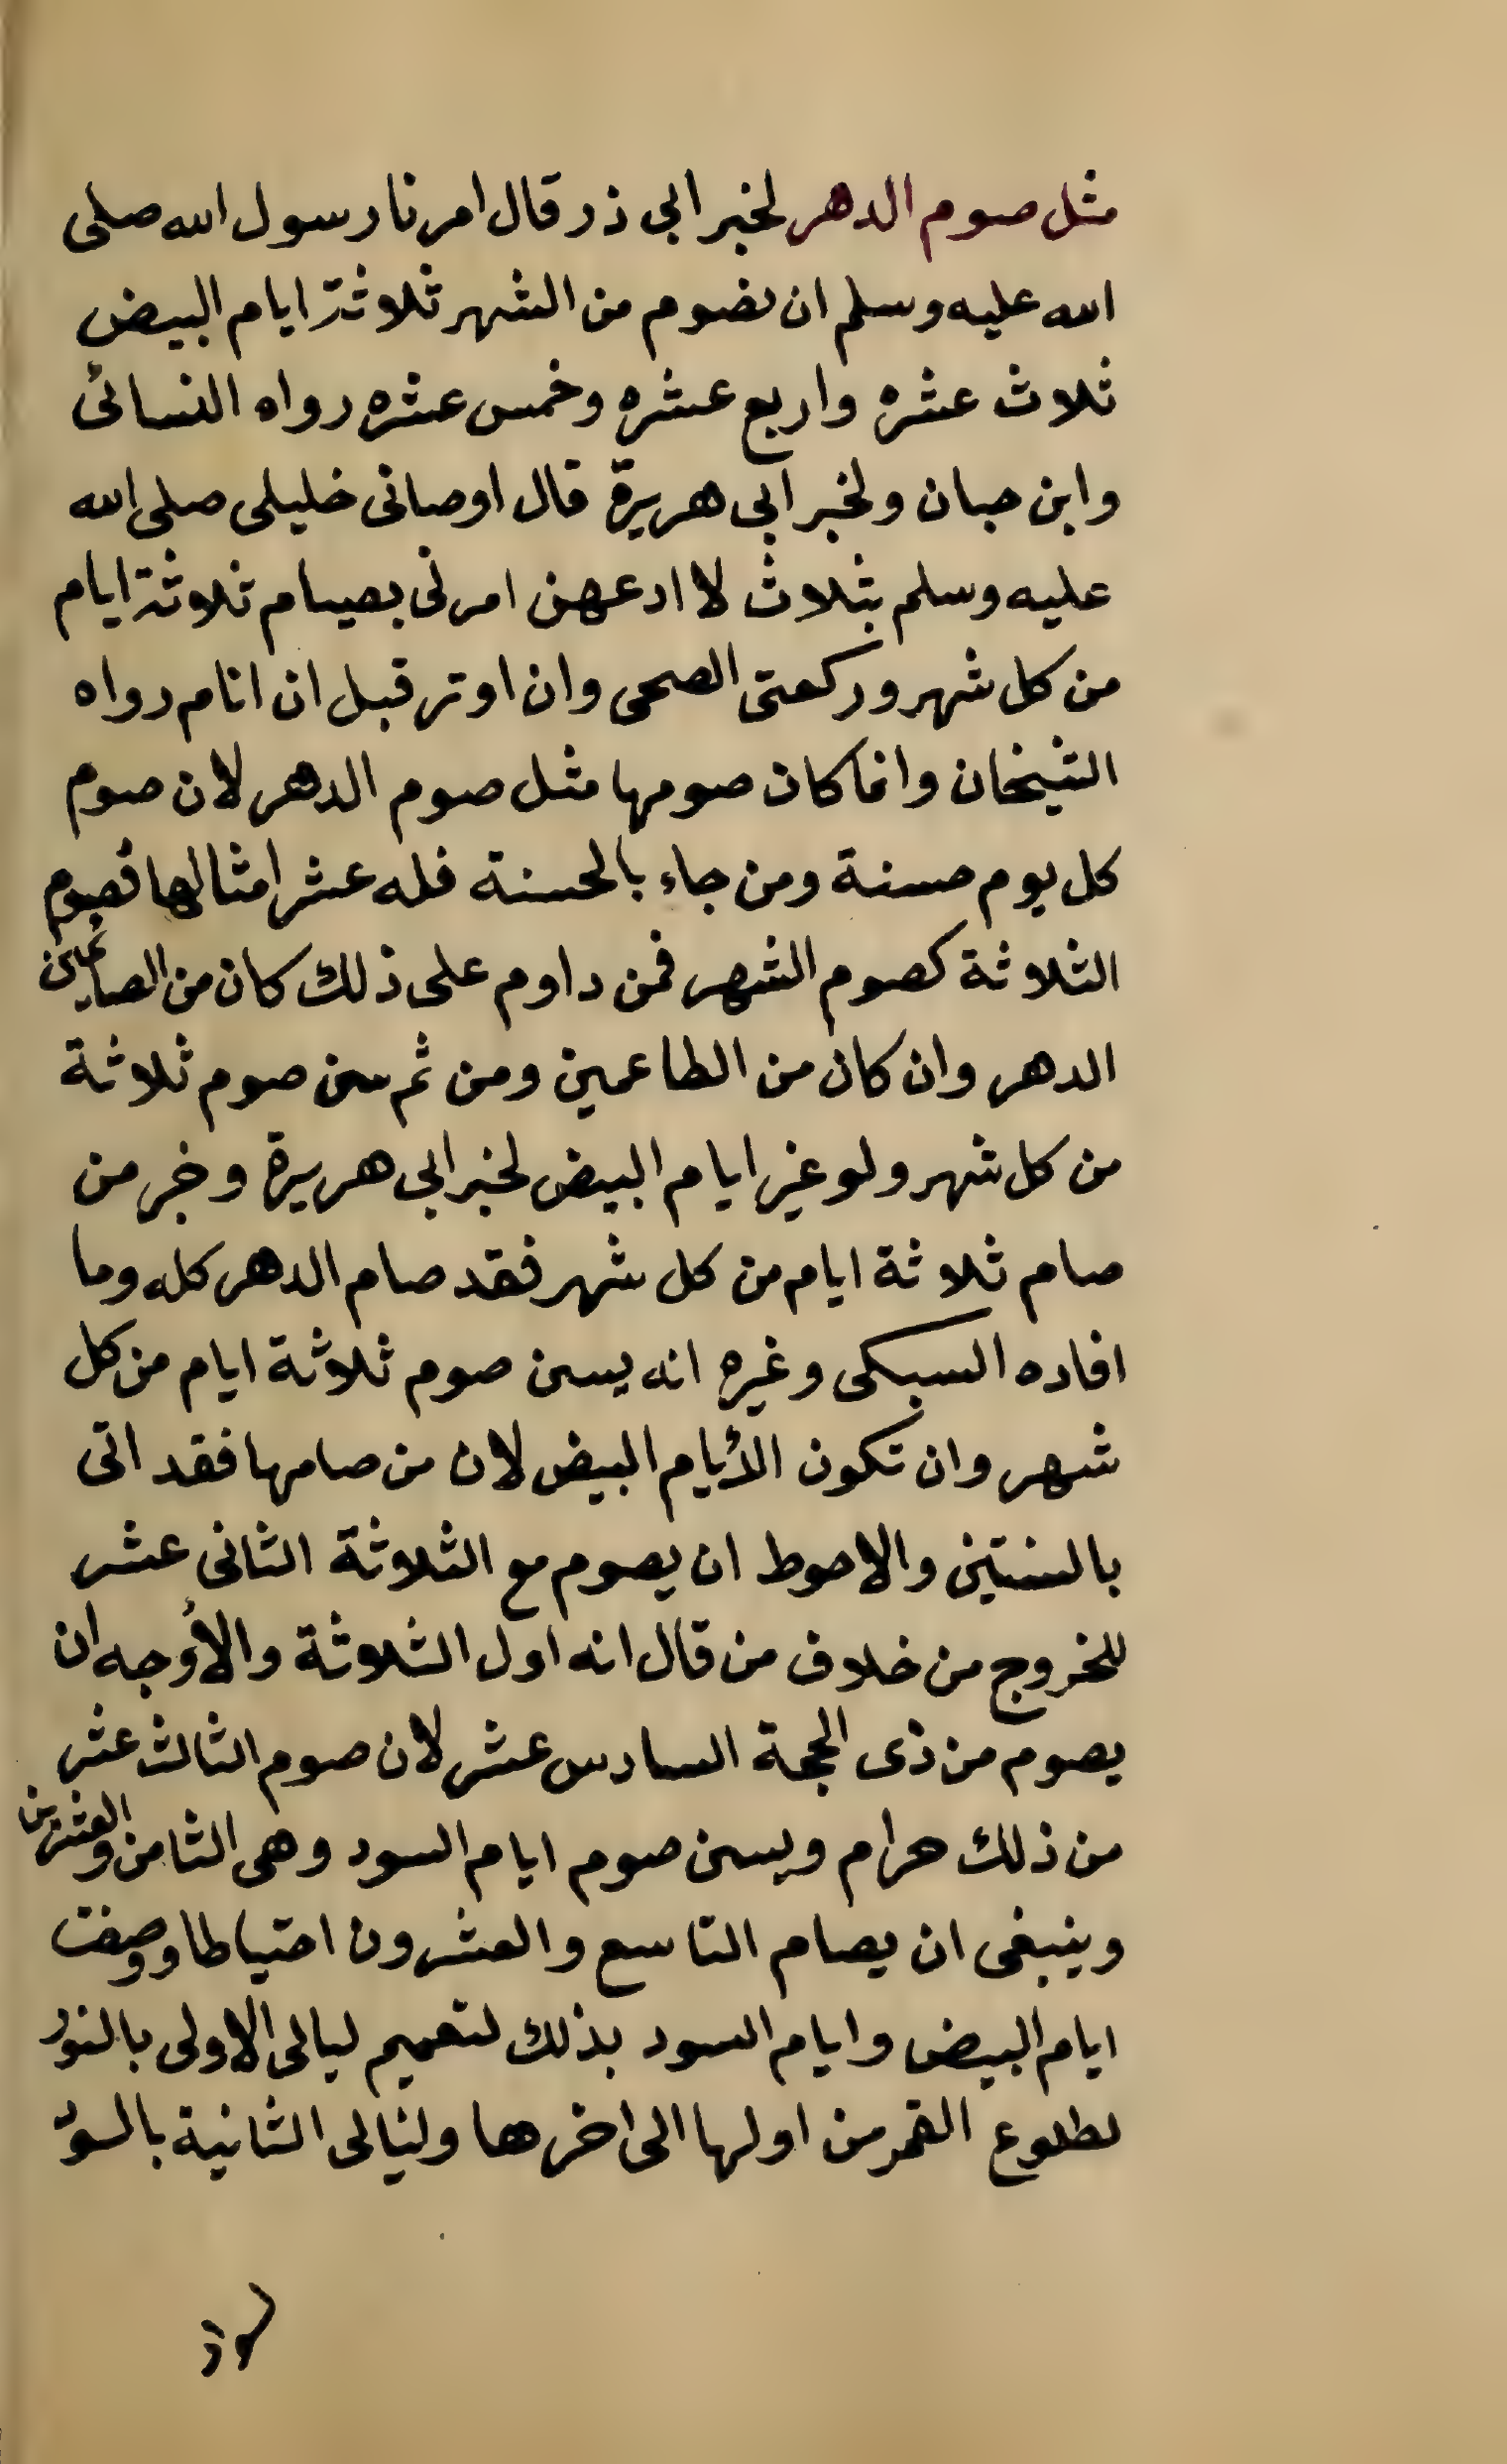 مثل صوم الدهر لخبر ابى ذر قال امرنا رسول الله صلى
الله عليه وسلم ان نصوم من الشهر ثلاثة ايام البيض
ثلاث عشره واربع عشره وخمس عشره رواه النسائى
وابن حبان ولخبر ابى هريرة قال اوصانى خليلى صلى الله
عليه وسلم بثلاث لا ادعهن امرنى بصيام ثلاثة ايام
من كل شهر وركعتى الضحى وان اوتر قبل ان انام رواه
الشيخان وانما كان صومها مثل صوم الدهر لان صوم
كل يوم حسنة ومن جاء بالحسنة فله عشر امثالها فصوم
الثلاثة كصوم الشهر فمن داوم على ذلك كان من الصائمين
الدهر وان كان من الطاعمين ومن ثم سن صوم ثلاثة
من كل شهر ولو غير ايام البيض لخبر ابى هريرة وخبر من
صام ثلاثة ايام من كل شهر فقد صام الدهر كله وما
افاده السبكى وغيره انه يسن صوم ثلاثة ايام من كل
شهر وان تكون الأيام البيض لان من صامها فقد اتى
بالسنتين والاحوط ان يصوم مع الثلاثة الثانى عشر
للخروج من خلاف من قال انه اول الثلاثة والأوجه ان
يصوم من ذى الحجة السادس عشر لان صوم الثالث عشر
من ذلك حرام ويسن صوم ايام السود وهى الثامن والعشرين
وينبغى ان يصام التاسع والعشرون احتياطا ووصفت
ايام البيض وايام السود بذلك لتعميم ليالى الاولى بالنور
لطلوع القمر من اولها الى اخرها وليالى الثانية بالسو